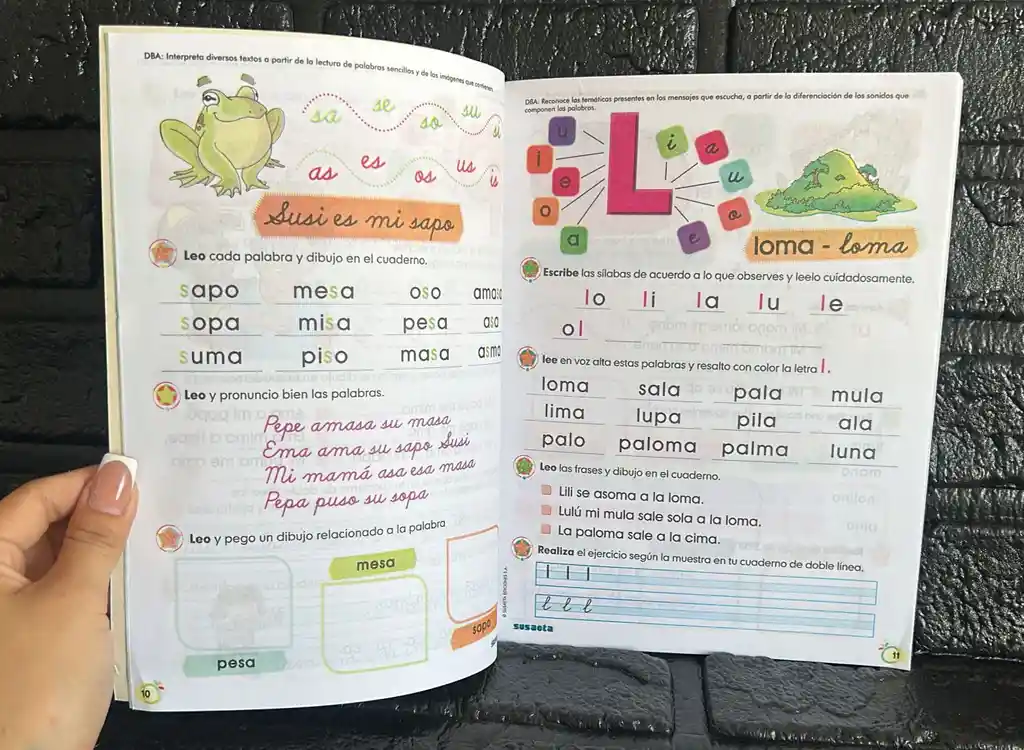 DBA: Interpreta diversos textos a partir de la lectura de palabras sencillas y de las imágenes que contienen.
sa se so su
as es os us is
Susi es mi sapo
Leo cada palabra y dibujo en el cuaderno.
sapo mesa oso amasa
sopa misa pesa asa
suma piso masa asma
Leo y pronuncio bien las palabras.
Pepe amasa su masa
Ema ama su sapo Susi
Mi mamá asa esa masa
Pepa puso su sopa
Leo y pego un dibujo relacionado a la palabra
mesa
sapo
pesa
10
DBA: Reconoce las temáticas presentes en los mensajes que escucha, a partir de la diferenciación de los sonidos que
componen las palabras.
u i e o a
L
i a u o e
loma - loma
Escribe las sílabas de acuerdo a lo que observes y leelo cuidadosamente.
lo li la lu le
ol
lee en voz alta estas palabras y resalto con color la letra l.
loma sala pala mula
lima lupa pila ala
palo paloma palma luna
Leo las frases y dibujo en el cuaderno.
Lili se asoma a la loma.
Lulú mi mula sale sola a la loma.
La paloma sale a la cima.
Realiza el ejercicio según la muestra en tu cuaderno de doble línea.
l l l
l l l
© SUSAETA EDICIONES S.A.
susaeta
11